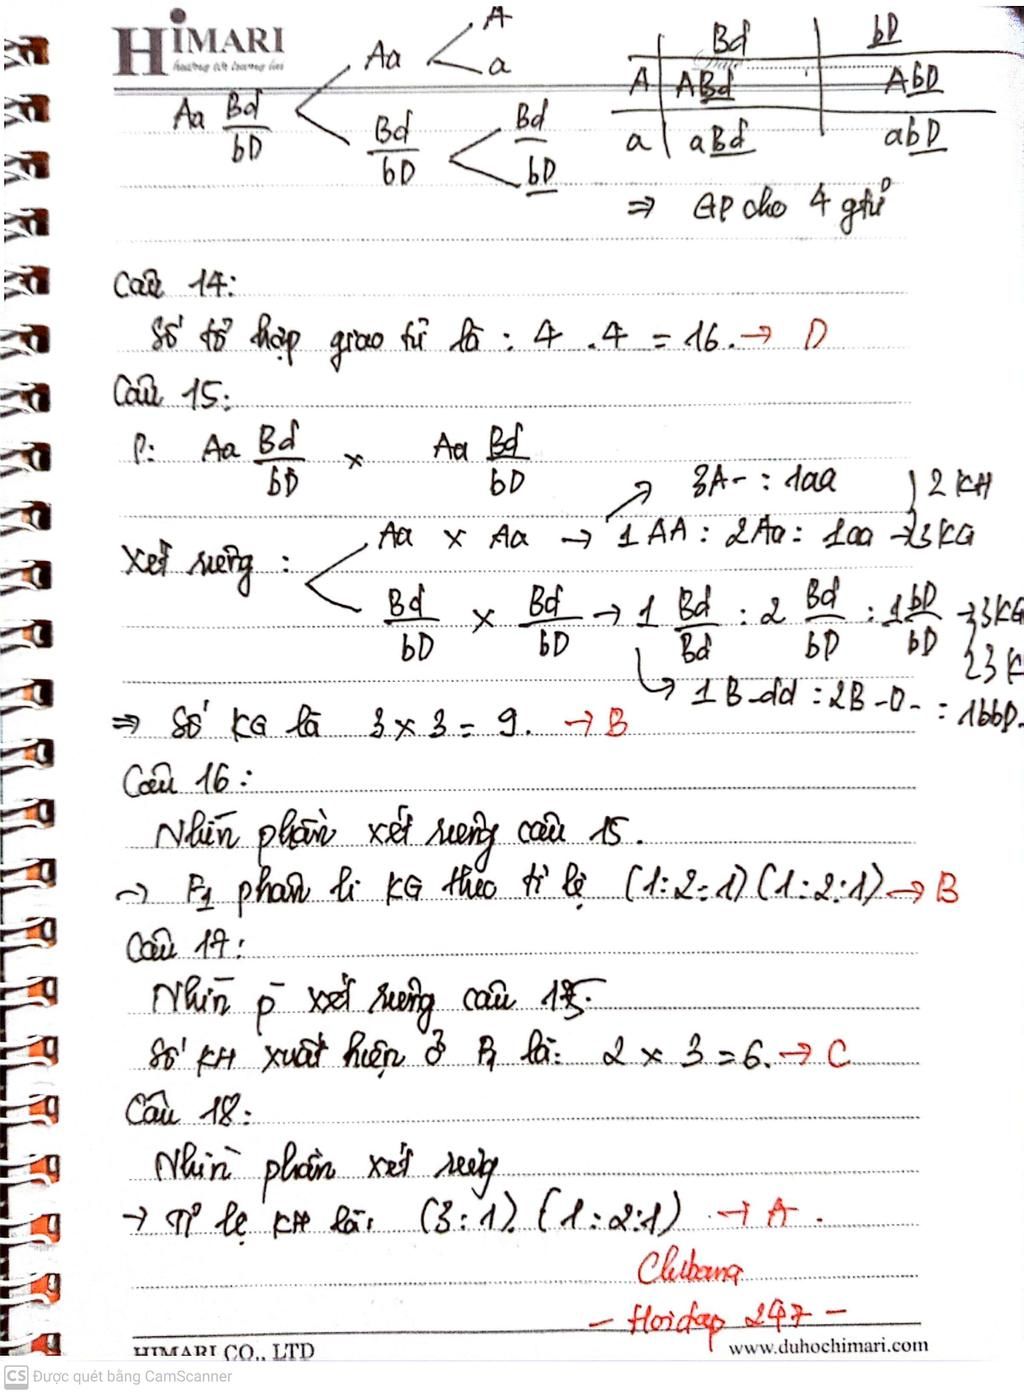 HIMARI
Aa < A
a
Aa Bd/bD
Bd/bD < Bd
bD
Bd | bD
A | ABd | AbD
a | aBd | abD
⇒ GP cho 4 gtử
Câu 14:
Số tổ hợp giao tử là : 4 . 4 = 16. → D
Câu 15:
P: Aa Bd/bD × Aa Bd/bD
3A- : 1aa } 2 KH
Xét riêng : Aa × Aa → 1AA : 2Aa : 1aa → 3KG
Bd/bD × Bd/bD → 1 Bd/Bd : 2 Bd/bD : 1 bD/bD → 3KG
→ 1B-dd : 2B-D- : 1bbD-
⇒ Số KG là 3 × 3 = 9. → B
Câu 16:
Nhìn phần xét riêng câu 15.
→ F1 phân li KG theo tỉ lệ (1:2:1)(1:2:1) → B
Câu 17:
Nhìn p̄ xét riêng câu 15.
Số KH xuất hiện ở F1 là: 2 × 3 = 6. → C
Câu 18:
Nhìn phần xét riêng
→ Tỉ lệ KH là: (3:1).(1:2:1) → A.
- Hoidap 247 -
HIMARI CO., LTD
www.duhochimari.com
CS Được quét bằng CamScanner